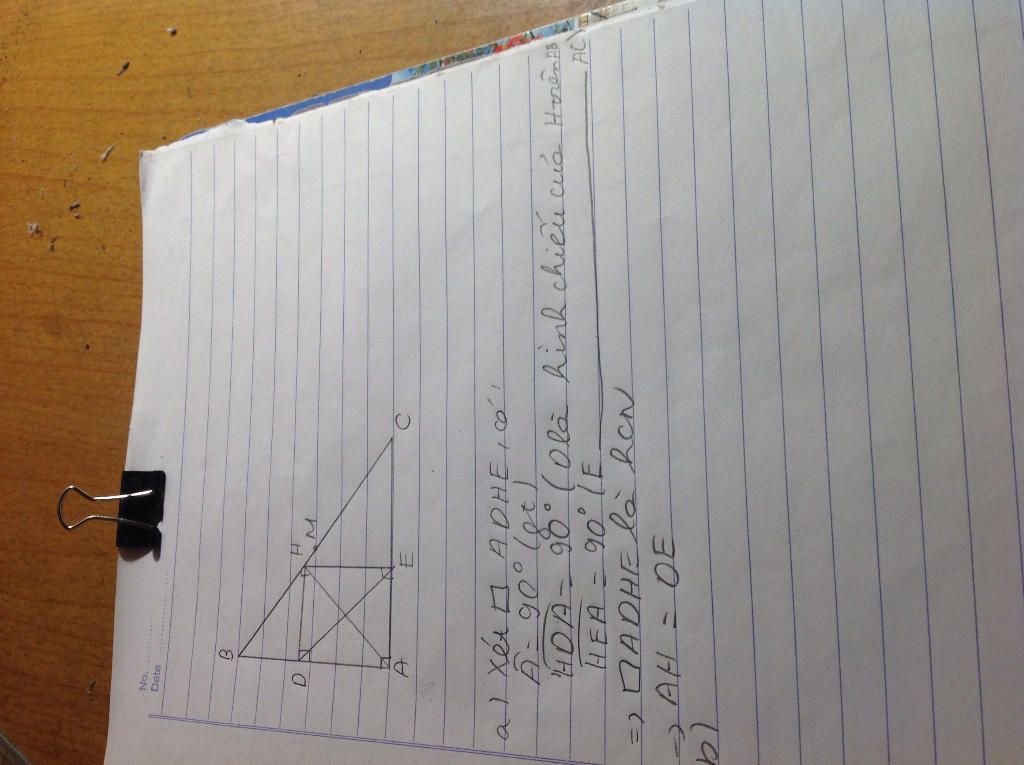 No.
Date
B
D
H
M
A
E
C
a) Xét □ ADHE, có:
Â = 90° (gt)
HDA = 90° (D là hình chiếu của H trên AB
HEA = 90° (E ______ AC
=) □ ADHE là hcN
=) AH = DE
b)